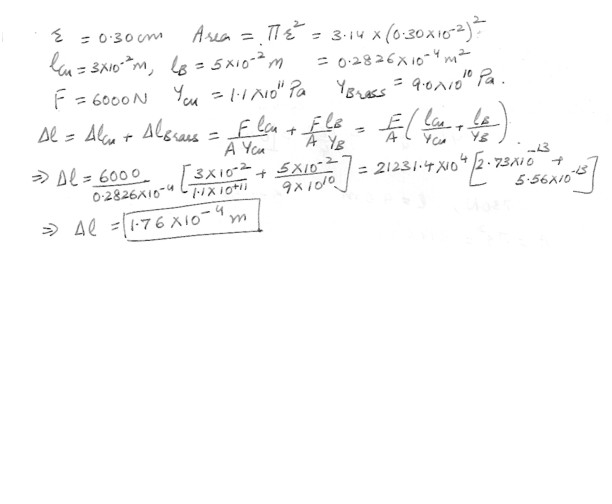 r = 0.30 cm Area = πr² = 3.14 × (0.30×10⁻²)²
l_Cu = 3×10⁻² m, l_B = 5×10⁻² m = 0.2826×10⁻⁴ m²
F = 6000 N Y_Cu = 1.1×10¹¹ Pa Y_Brass = 9.0×10¹⁰ Pa.
Δl = Δl_Cu + Δl_Brass = F l_Cu / A Y_Cu + F l_B / A Y_B = F/A (l_Cu/Y_Cu + l_B/Y_B).
⇒ Δl = 6000 / 0.2826×10⁻⁴ [3×10⁻² / 1.1×10⁺¹¹ + 5×10⁻² / 9×10¹⁰] = 21231.4×10⁴ [2.73×10⁻¹³ + 5.56×10⁻¹³]
⇒ Δl = 1.76×10⁻⁴ m